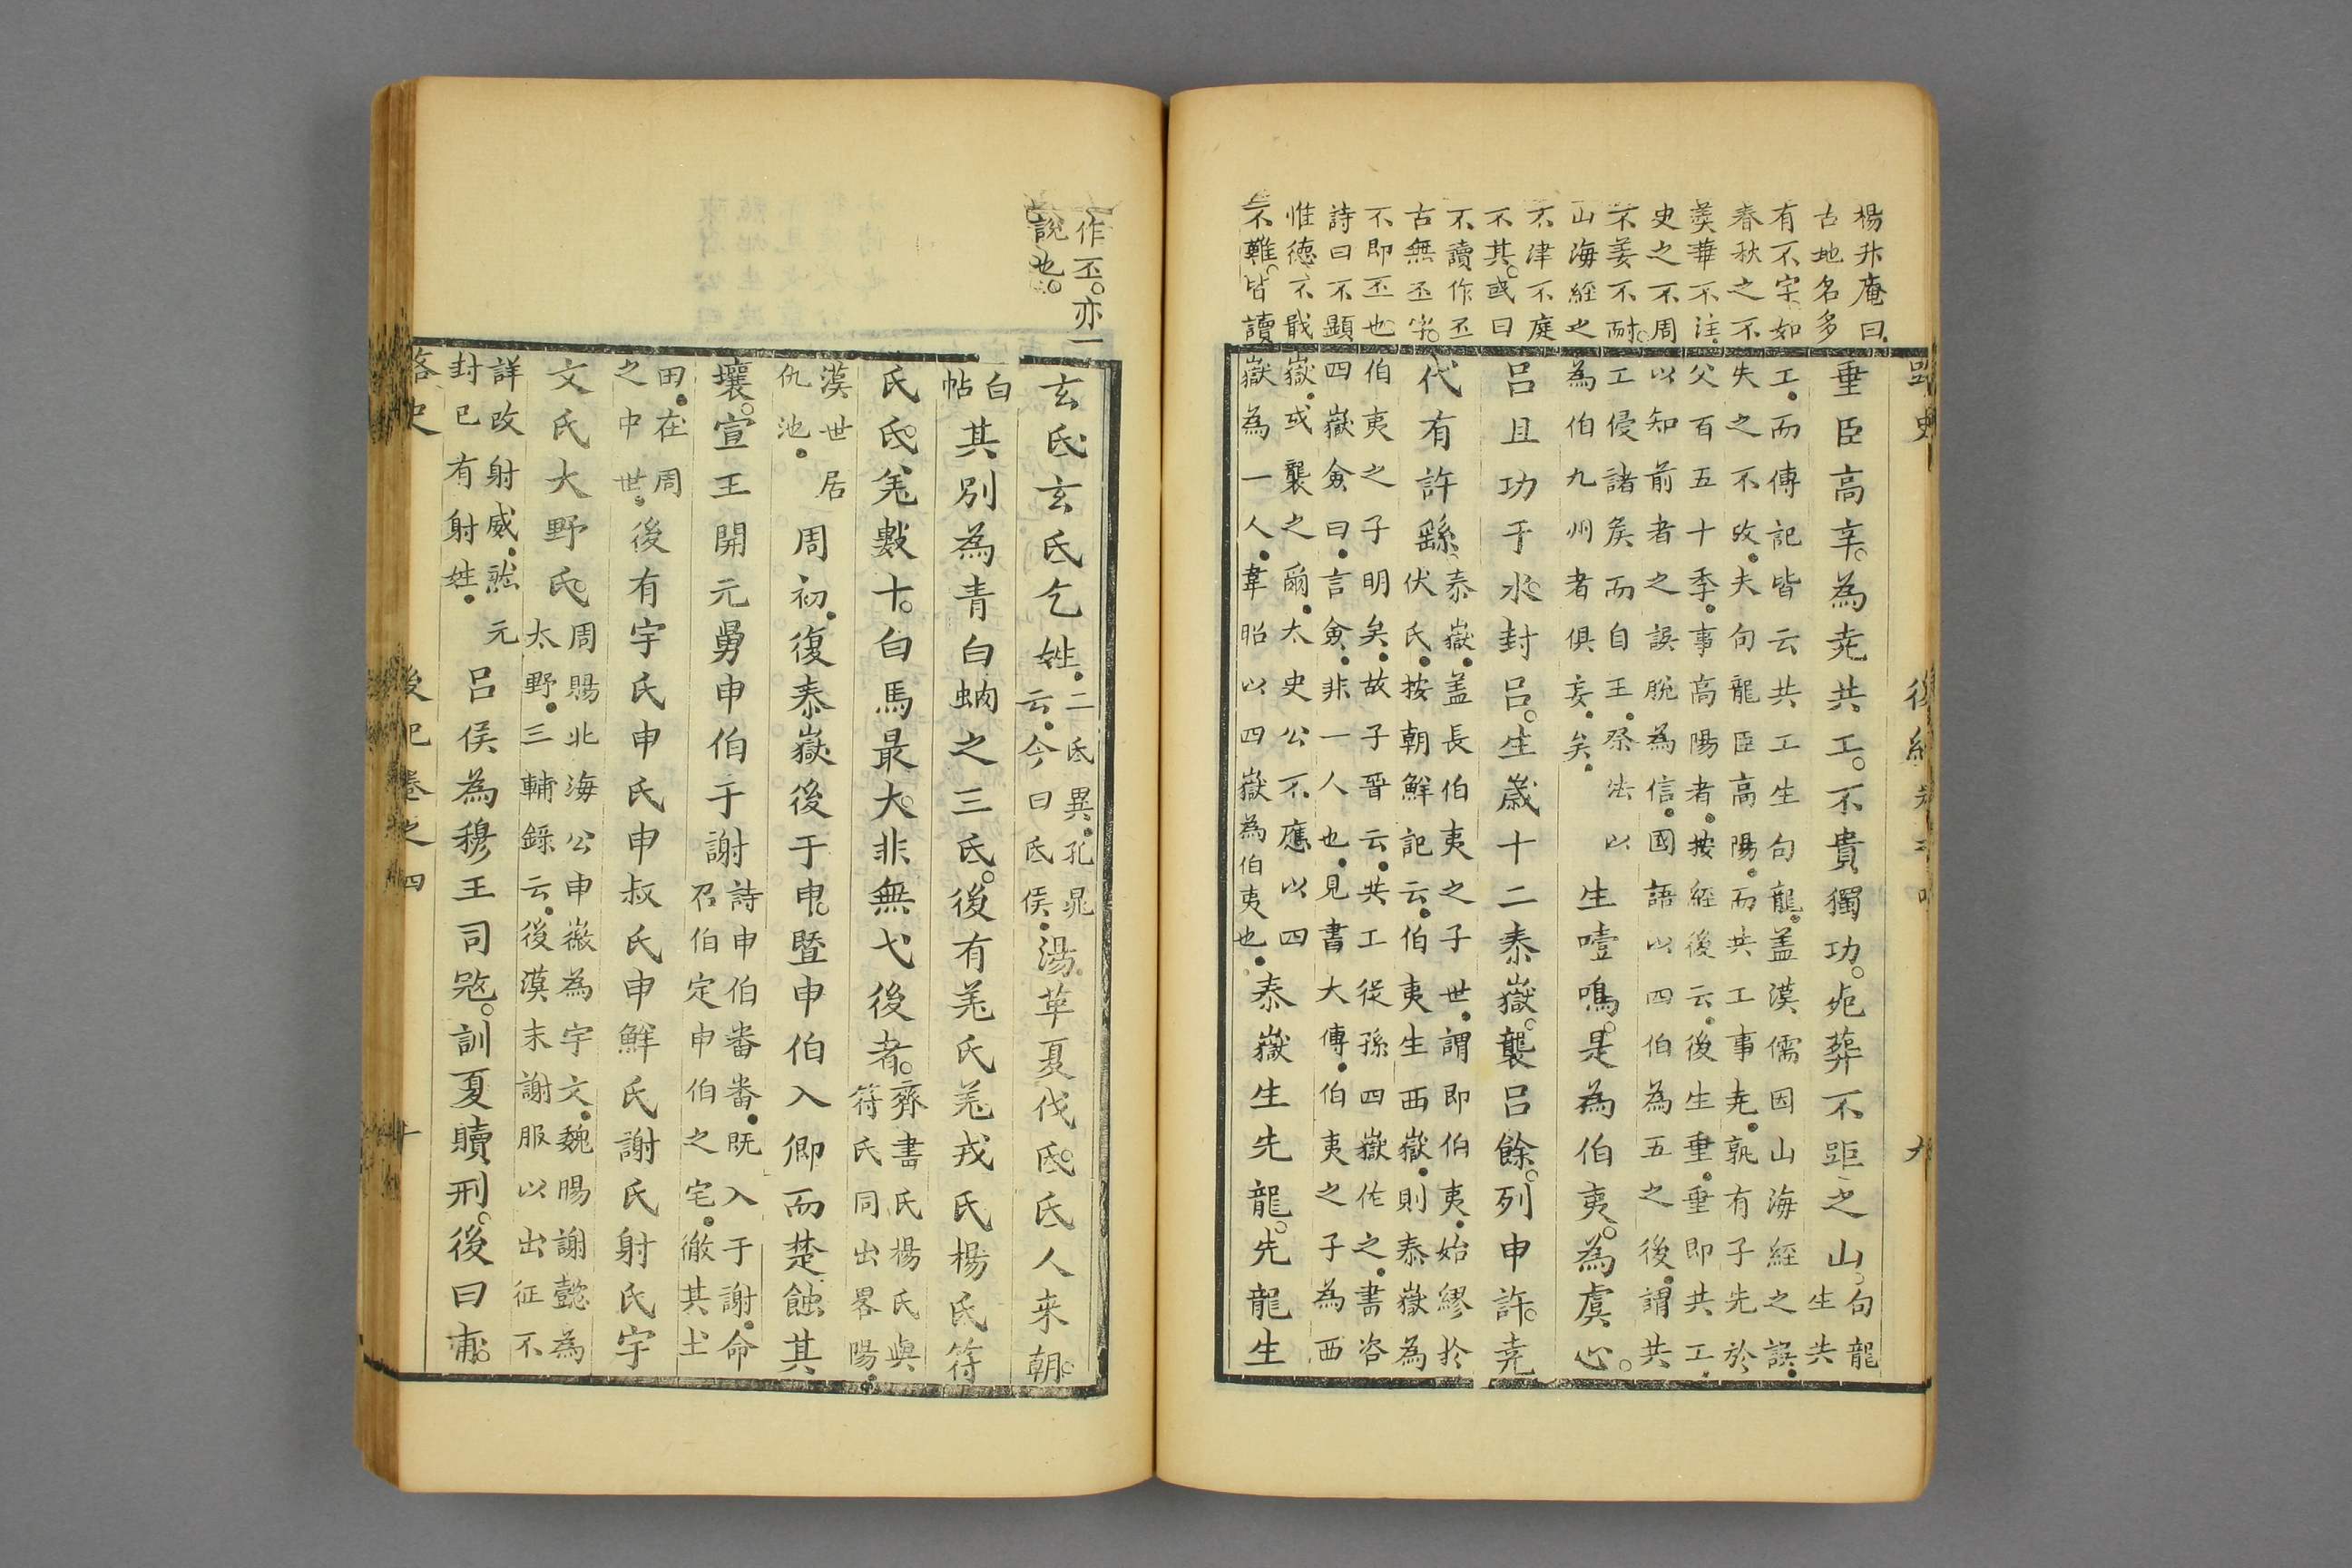 楊升庵曰
古地名多
有不字如
春秋之不
羮華不注
史之不周
不姜不耐
山海經之
不津不庭
不其或曰
不讀作丕
古無丕字
不即丕也
詩曰不顯
惟德不戢
不難皆讀
路史 後紀卷之四 九
垂臣高辛。為尭共工。不貴獨功。死葬不距之山。句龍
生共
工。而傳記皆云共工生句龍。蓋漢儒因山海經之誤。
失之不攷。夫句龍臣高陽。而共工事尭。孰有子先於
父百五十季。事高陽者。按經後云。後生垂。垂即共工。
以知前者之誤脫為信。國語以四伯為五之後。謂共
工侵諸矦而自王。祭法以
為伯九州者俱妄矣。
生噎鳴。是為伯夷。為虞心。
呂且功于水。封呂。生歲十二泰嶽。襲呂餘。列申許。尭
代有許繇。
泰嶽。蓋長伯夷之子世。謂即伯夷。始繆於
伏氏。按朝鮮記云。伯夷生西嶽。則泰嶽為
伯夷之子明矣。故子晉云。共工從孫四嶽佐之。書咨
四嶽僉曰。言僉。非一人也。見書大傳。伯夷之子為西
嶽。或襲之爾。太史公不應以四
嶽為一人。韋昭以四嶽為伯夷也。
泰嶽生先龍。先龍生
作丕。亦一
說也。
玄氐。玄氐乞姓。
二氐異。孔晁
云。今曰氐侯。
湯革夏伐氐。氐人来朝。
白
帖
其別為青白蚺之三氐。後有羌氏羌戎氏楊氏符
氏。氐羌數十。白馬最大。非無弋後者。
齊書氐楊氏與
符氏同出畧陽。
漢世居
仇池。
周初。復泰嶽後于申。曁申伯入卿而楚蝕其
壤。宣王開元舅申伯于謝
詩申伯番番。既入于謝。命
召伯定申伯之宅。徹其土
田。在周
之中世。
後有宇氏申氏申叔氏申鮮氏謝氏射氏宇
文氏大野氏。
周賜北海公申徽為宇文。魏賜謝懿為
太野。三輔錄云。後漢末謝服以出征不
詳改射威。然元
封已有射姓。
呂侯為穆王司㓂。訓夏贖刑。後曰甫。
路史 後紀卷之四 十